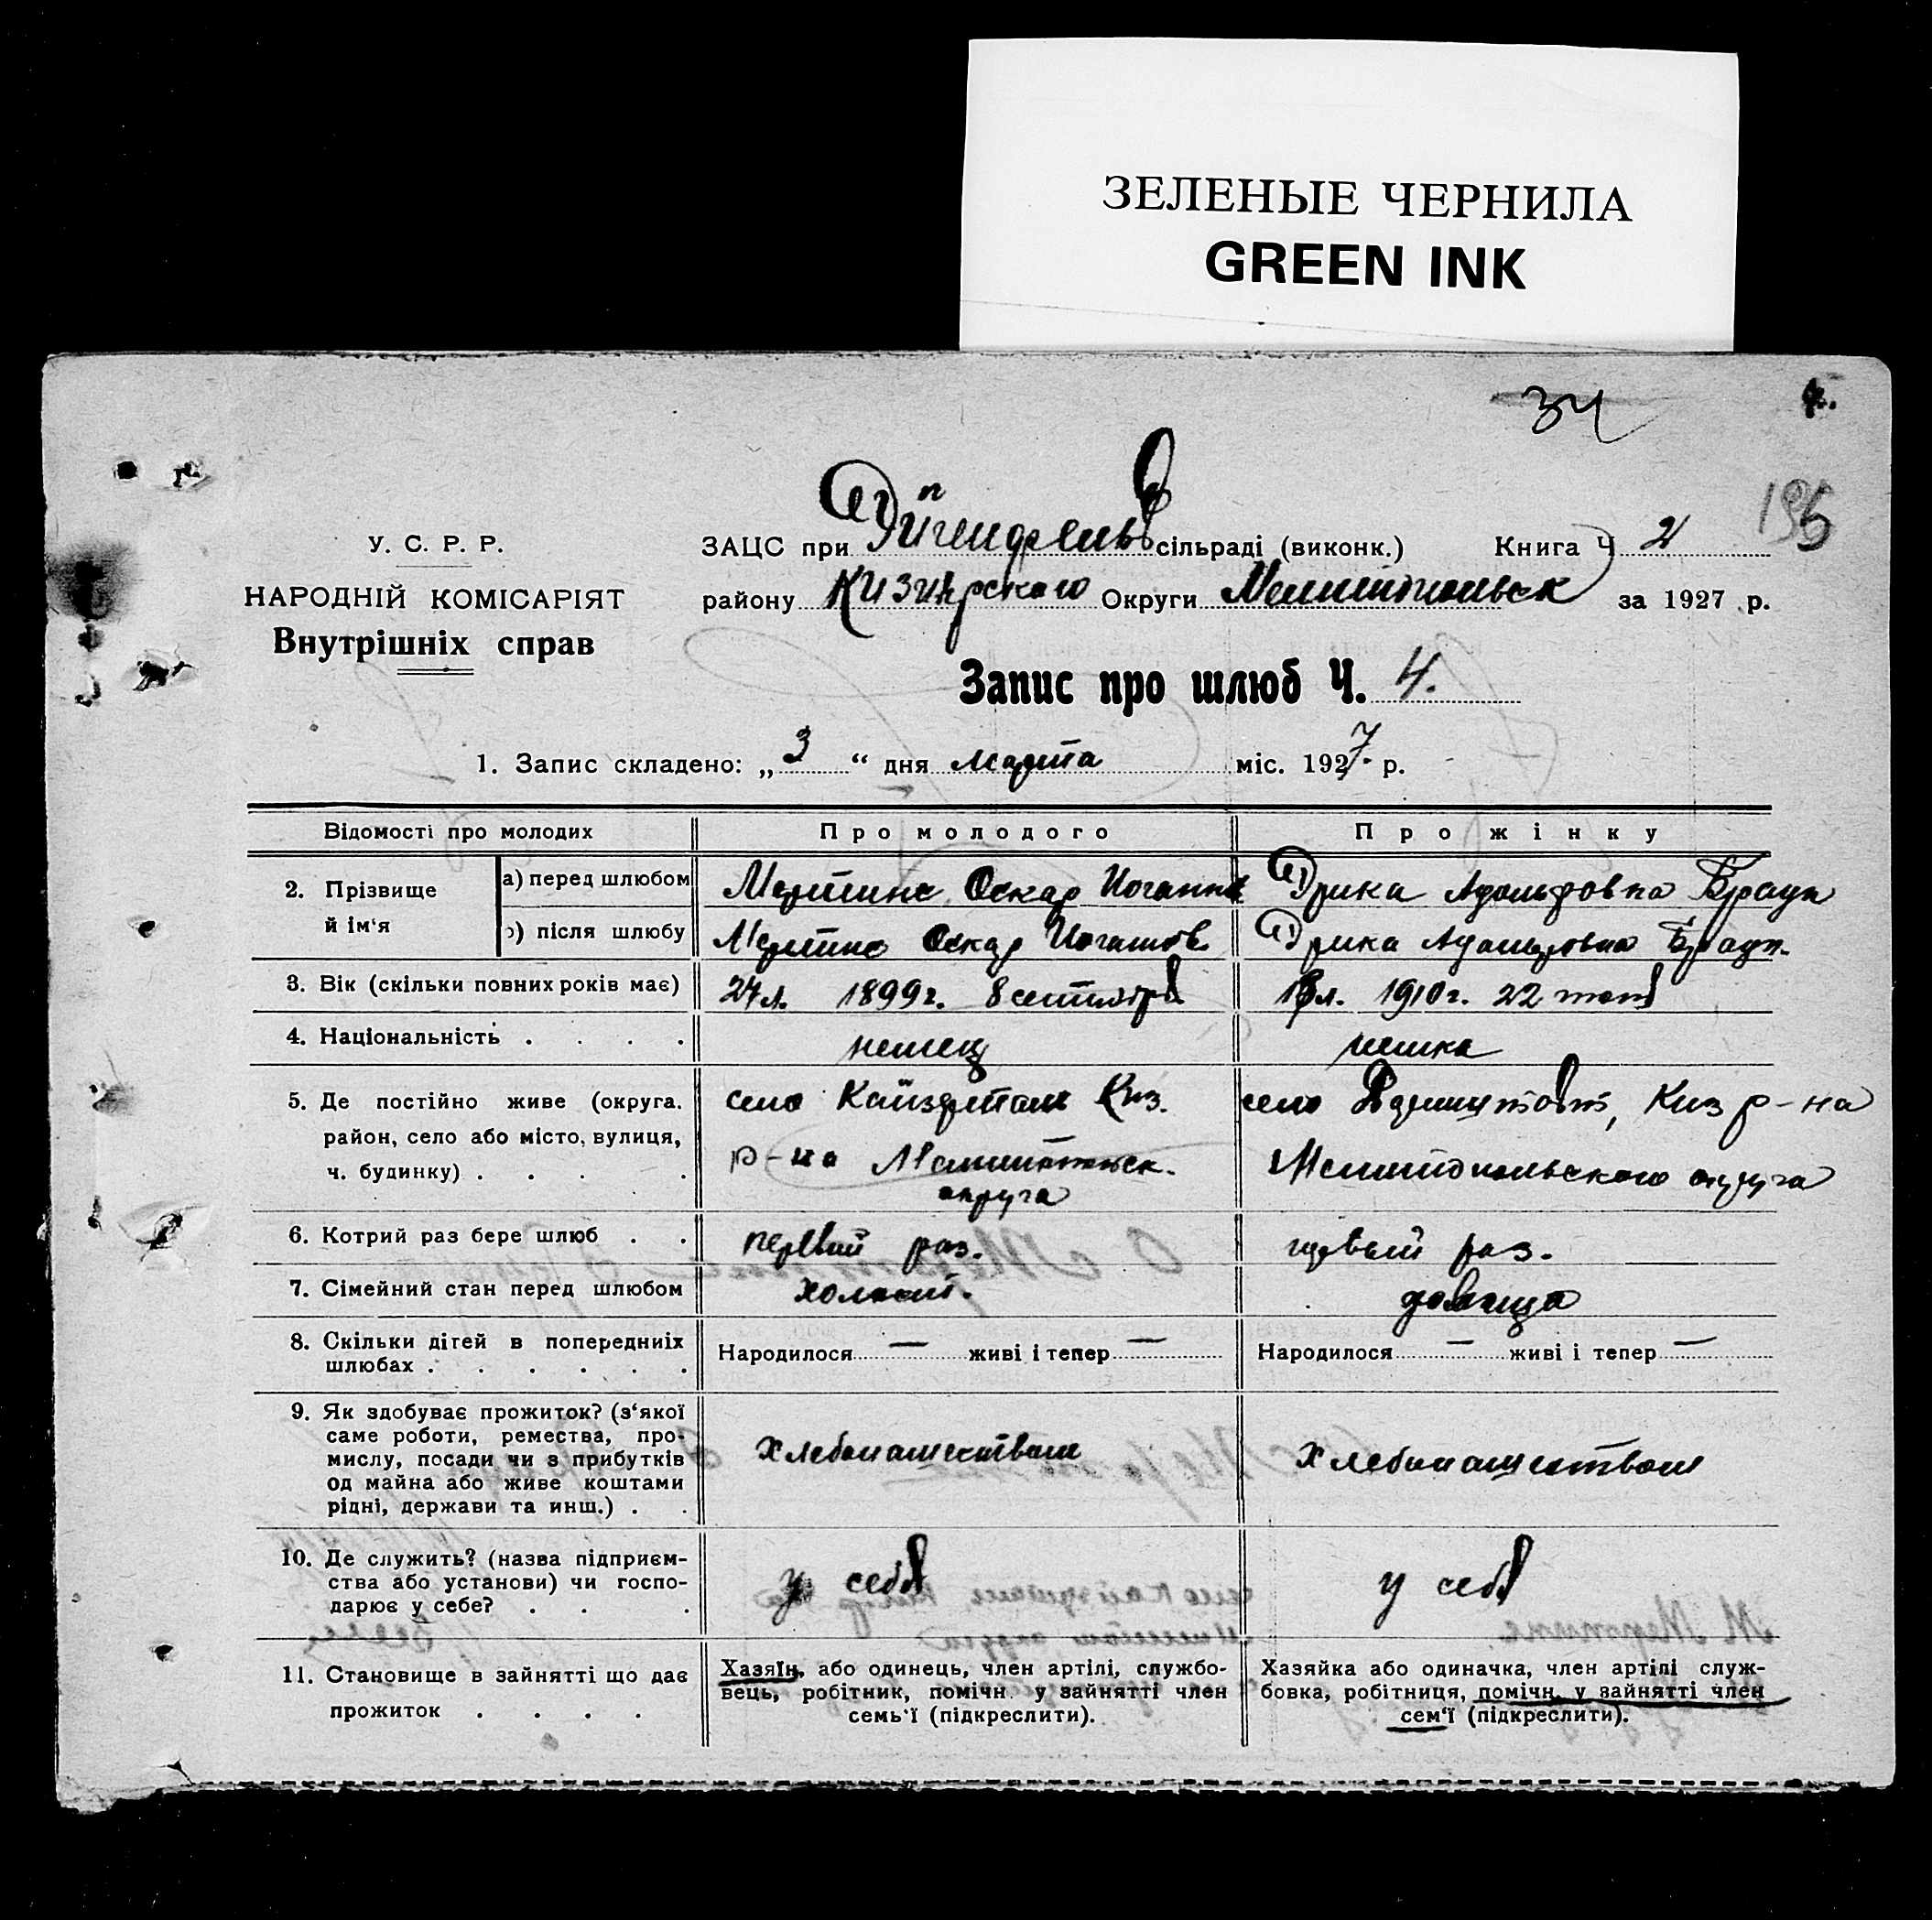 ЗЕЛЕНЫЕ ЧЕРНИЛА
GREEN INK
34
195
У. С. Р. Р.
НАРОДНІЙ КОМІСАРІЯТ
Внутрішніх справ
ЗАЦС при сільраді (виконк.) Книга Ч 2
району Кизиярского Округи Мелитопольск за 1927 р.
Запис про шлюб Ч. 4.
1. Запис складено: „ 3 “ дня марта міс. 1927 р.
Відомості про молодих Про молодого Про жінку
2. Прізвище й ім‘я
а) перед шлюбом Мертинс Оскар Иоганнов Эрика Адольфовна Браун
б) після шлюбу Мертинс Оскар Иоганнов Эрика Адольфовна Браун.
3. Вік (скільки повних років має) 27 л. 1899 г. 8 сентября л. 1910 г. 22
4. Національність . . . . немец немка
5. Де постійно живе (округа, район, село або місто, вулиця, ч. будинку) . . . .
село Кайзерталь Киз. р-на Мелитопольск. округа
село Дармштадт, Киз р-на Мелитопольского округа
6. Котрий раз бере шлюб . . первый раз. первый раз.
7. Сімейний стан перед шлюбом холост. девица
8. Скільки дітей в попередниіх шлюбах . . . . . .
Народилося — живі і тепер — Народилося — живі і тепер —
9. Як здобуває прожиток? (з‘якої саме роботи, ремества, промислу, посади чи з прибутків од майна або живе коштами рідні, держави та инш.) . .
Хлебопашеством Хлебопашеством
10. Де служить? (назва підприємства або установи) чи господарює у себе? . . .
у себя у себя
11. Становище в зайнятті що дає прожиток . . . .
Хазяїн, або одинець, член артілі, службовець, робітник, помічн. у зайнятті член семь‘ї (підкреслити).
Хазяйка або одиначка, член артілі службовка, робітниця, помічн. у зайнятті член сем‘ї (підкреслити).